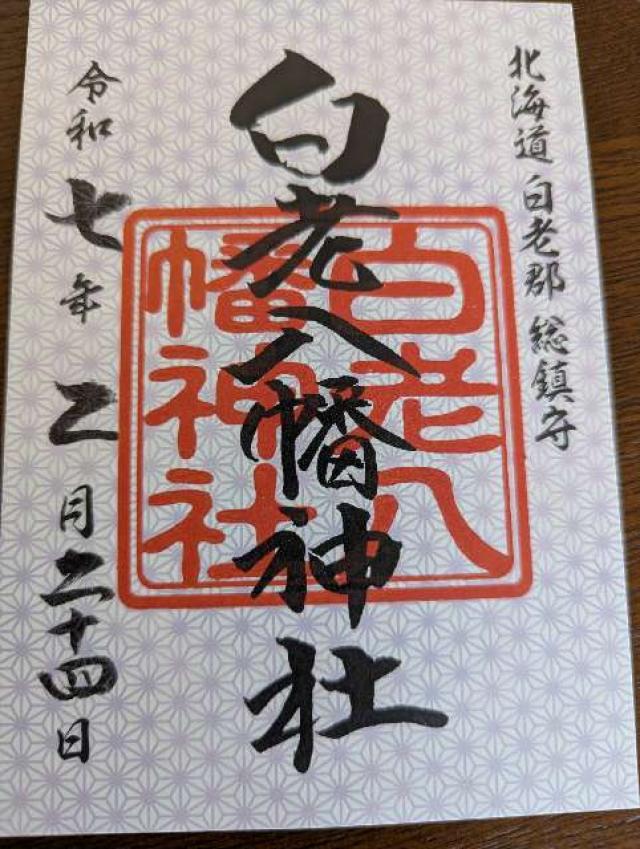 北海道 白老郡 総鎮守
白老八幡神社
白老八
幡神社
令和七年二月二十四日